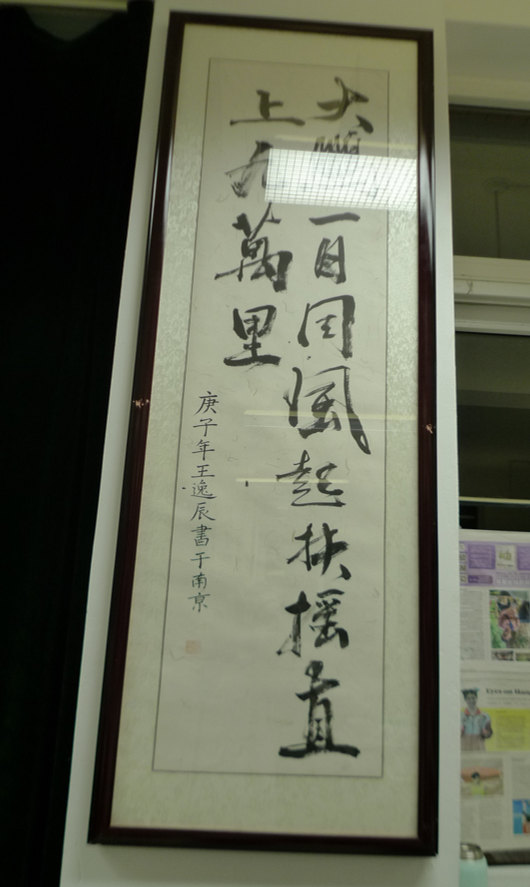 大鹏一日同风起扶摇直
上九萬里
庚子年王逸辰書于南京
Eyes on